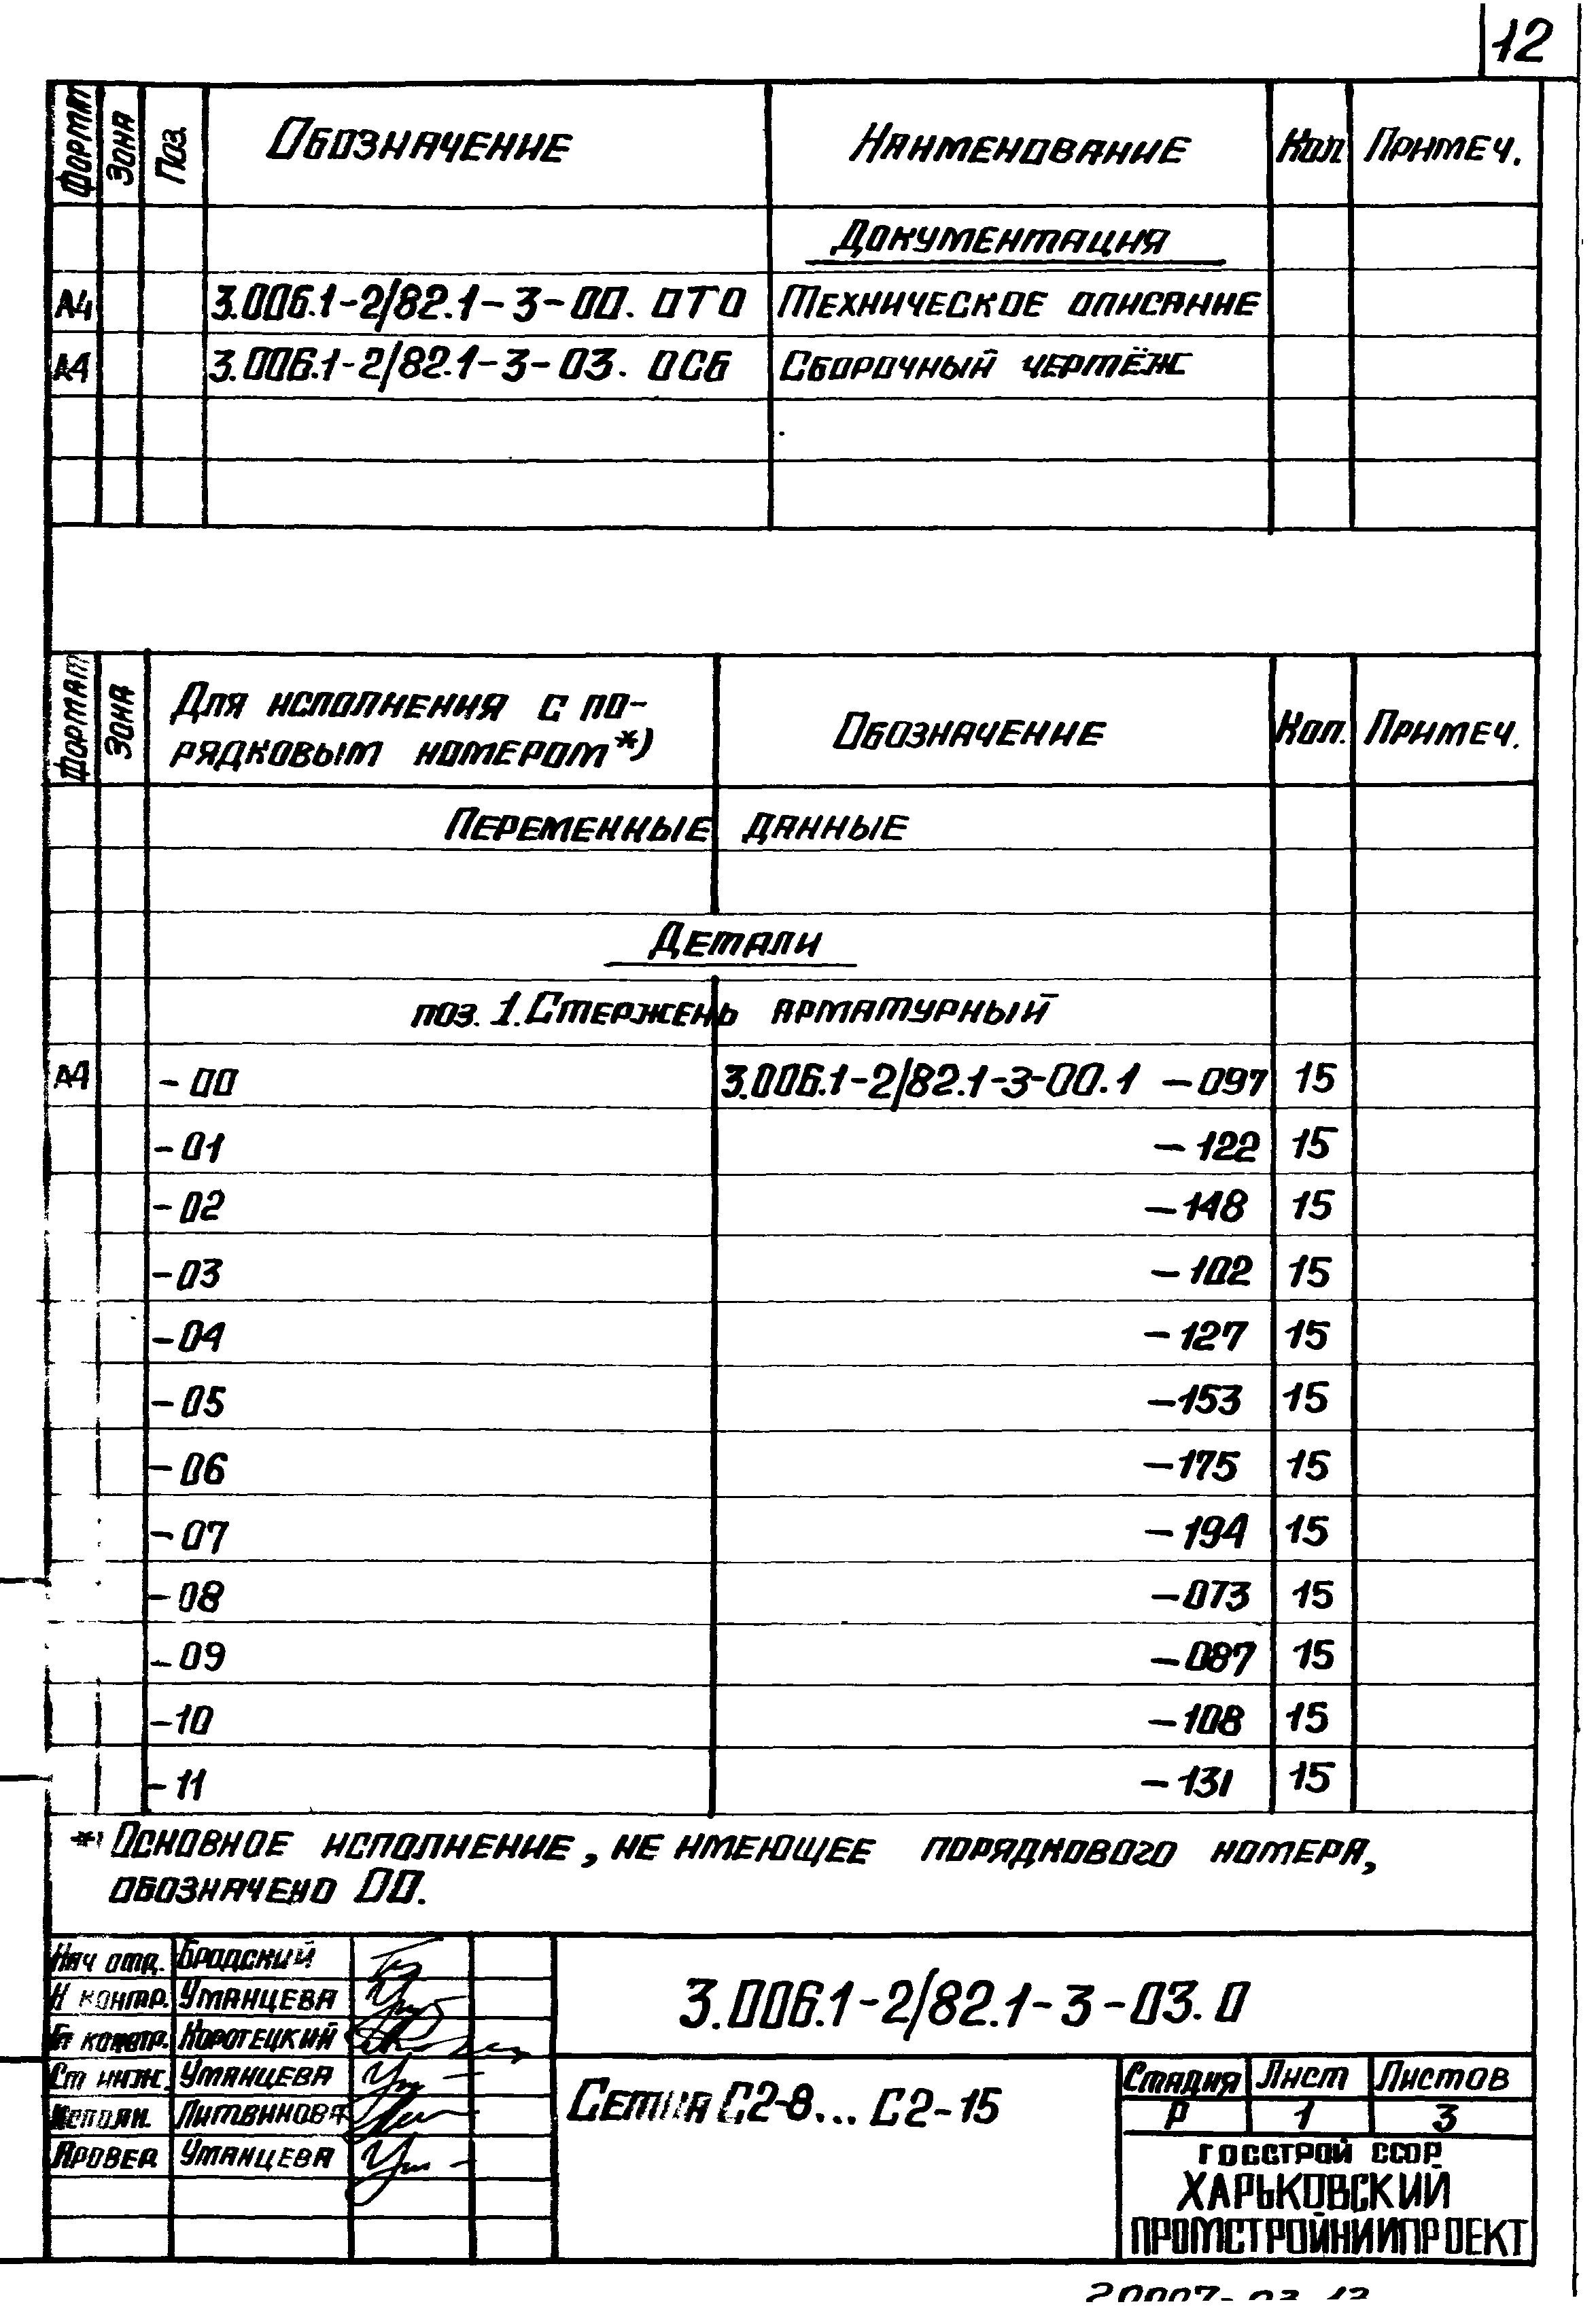 12
Формат Зона Поз. Обозначение Наименование Кол Примеч.
Документация
А4 3.006.1-2/82.1-3-00.0ТО Техническое описание
А4 3.006.1-2/82.1-3-03.0СБ Сборочный чертёж
Формат Зона Для исполнения с по- Обозначение Кол. Примеч.
рядковым номером*)
Переменные данные
Детали
поз. 1. Стержень арматурный
А4 -00 3.006.1-2/82.1-3-00.1 -097 15
-01 -122 15
-02 -148 15
-03 -102 15
-04 -127 15
-05 -153 15
-06 -175 15
-07 -194 15
-08 -073 15
-09 -087 15
-10 -108 15
-11 -131 15
*) Основное исполнение, не имеющее порядкового номера,
обозначено 00.
Нач отд. Бродский
Н контр. Уманцева
Гл констр. Коротецкий
Ст инж. Уманцева
Исполн. Литвинова
Провер Уманцева
3.006.1-2/82.1-3-03.0
Сетка С2-8... С2-15
Стадия Лист Листов
Р 1 3
ГОССТРОЙ СССР
ХАРЬКОВСКИЙ
ПРОМСТРОЙНИИПРОЕКТ